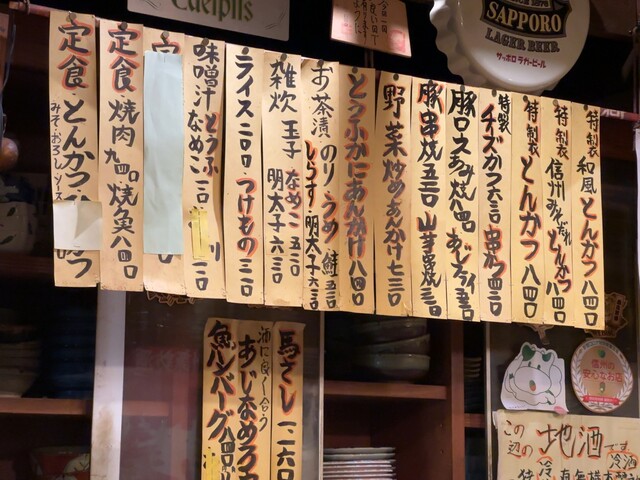 Edelpils
SAPPORO
LAGER BEER
サッポロ ラガービール
特製 和風とんかつ 八四〇
特製 信州みそだれとんかつ 八四〇
特製 とんかつ 八四〇
特製 チーズかつ 六三〇 串かつ 四二〇
豚ロースみそ焼 八四〇 あじフライ 五二〇
豚串焼 五二〇 山芋鉄焼
野菜炒めあんかけ 七三〇
とうふかにあんかけ 八四〇
お茶漬 のり うめ 鮭 五二〇
しらす 明太子 六三〇
雑炊 玉子 なめこ 五二〇
明太子 六三〇
ライス 二一〇 つけもの 三一〇
味噌汁 とうふ
なめこ 二一〇
定食 焼肉 九四〇 焼魚 八四〇
定食 とんかつ
みそ・おろし ソース
馬さし 一二六〇
酒に良く合う
あじなめろう
魚ハンバーグ 八四〇
この辺の地酒です
冷酒
信州の
安心なお店